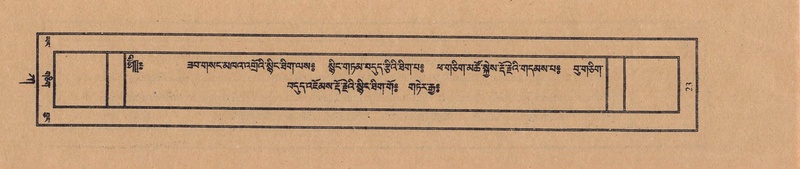 ཟབ་གསང་མཁའ་འགྲོའི་སྙིང་ཐིག་ལས༔ སྙིང་གཏམ་བདུད་རྩིའི་ཐིག་པ༔ ཕ་གཅིག་མཚོ་སྐྱེས་རྡོ་རྗེའི་གདམས་པ༔ བུ་གཅིག་
བདུད་འཇོམས་རྡོ་རྗེའི་སྙིང་ཐིག་གོ༔ གཏེར་རྒྱ༔
གཅིག
23